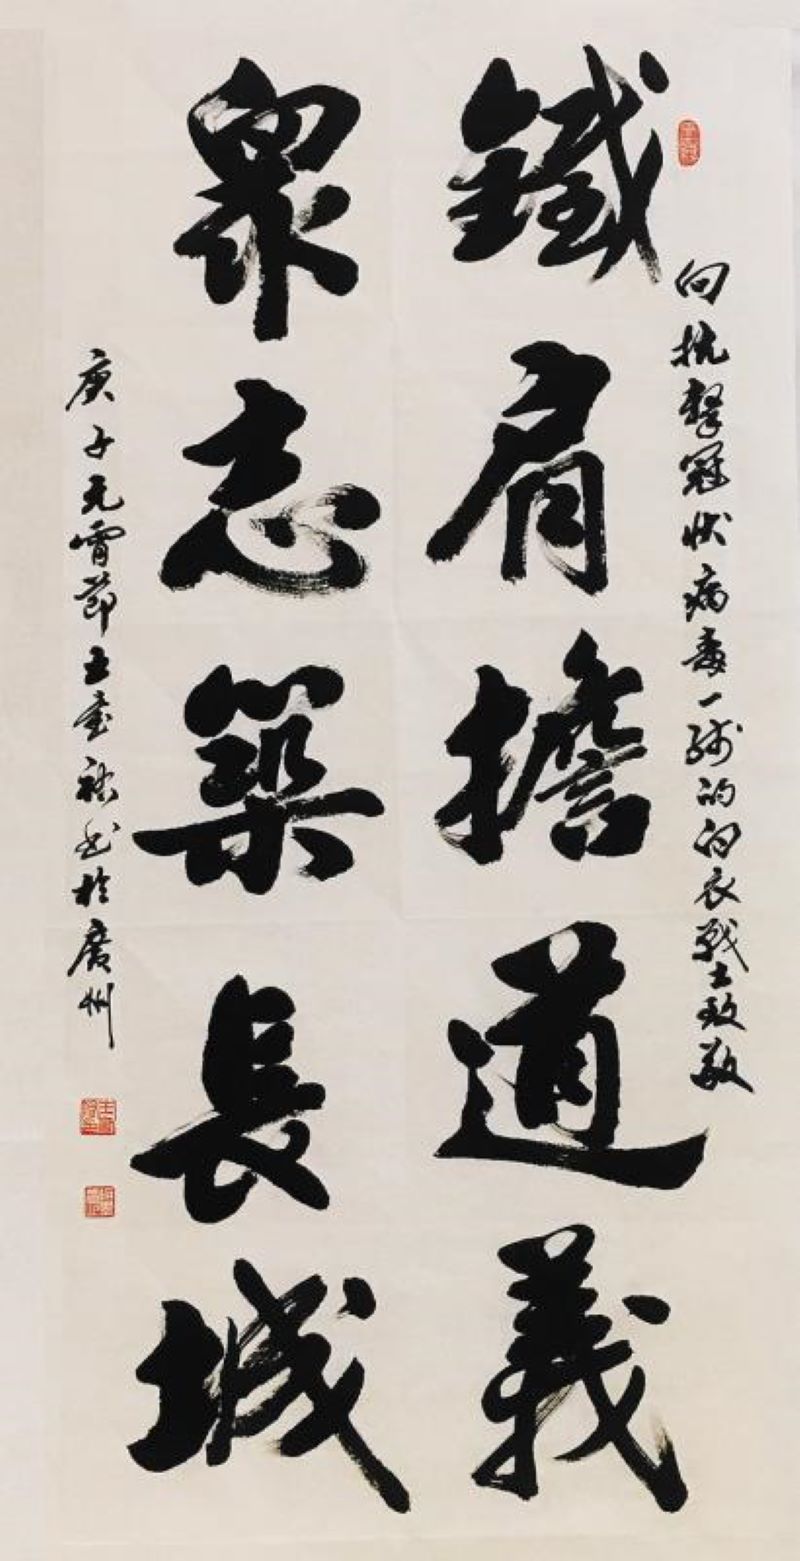 向抗擊冠狀病毒一線的白衣戰士致敬
鐵肩擔道義
眾志築長城
庚子元宵節王書於廣州